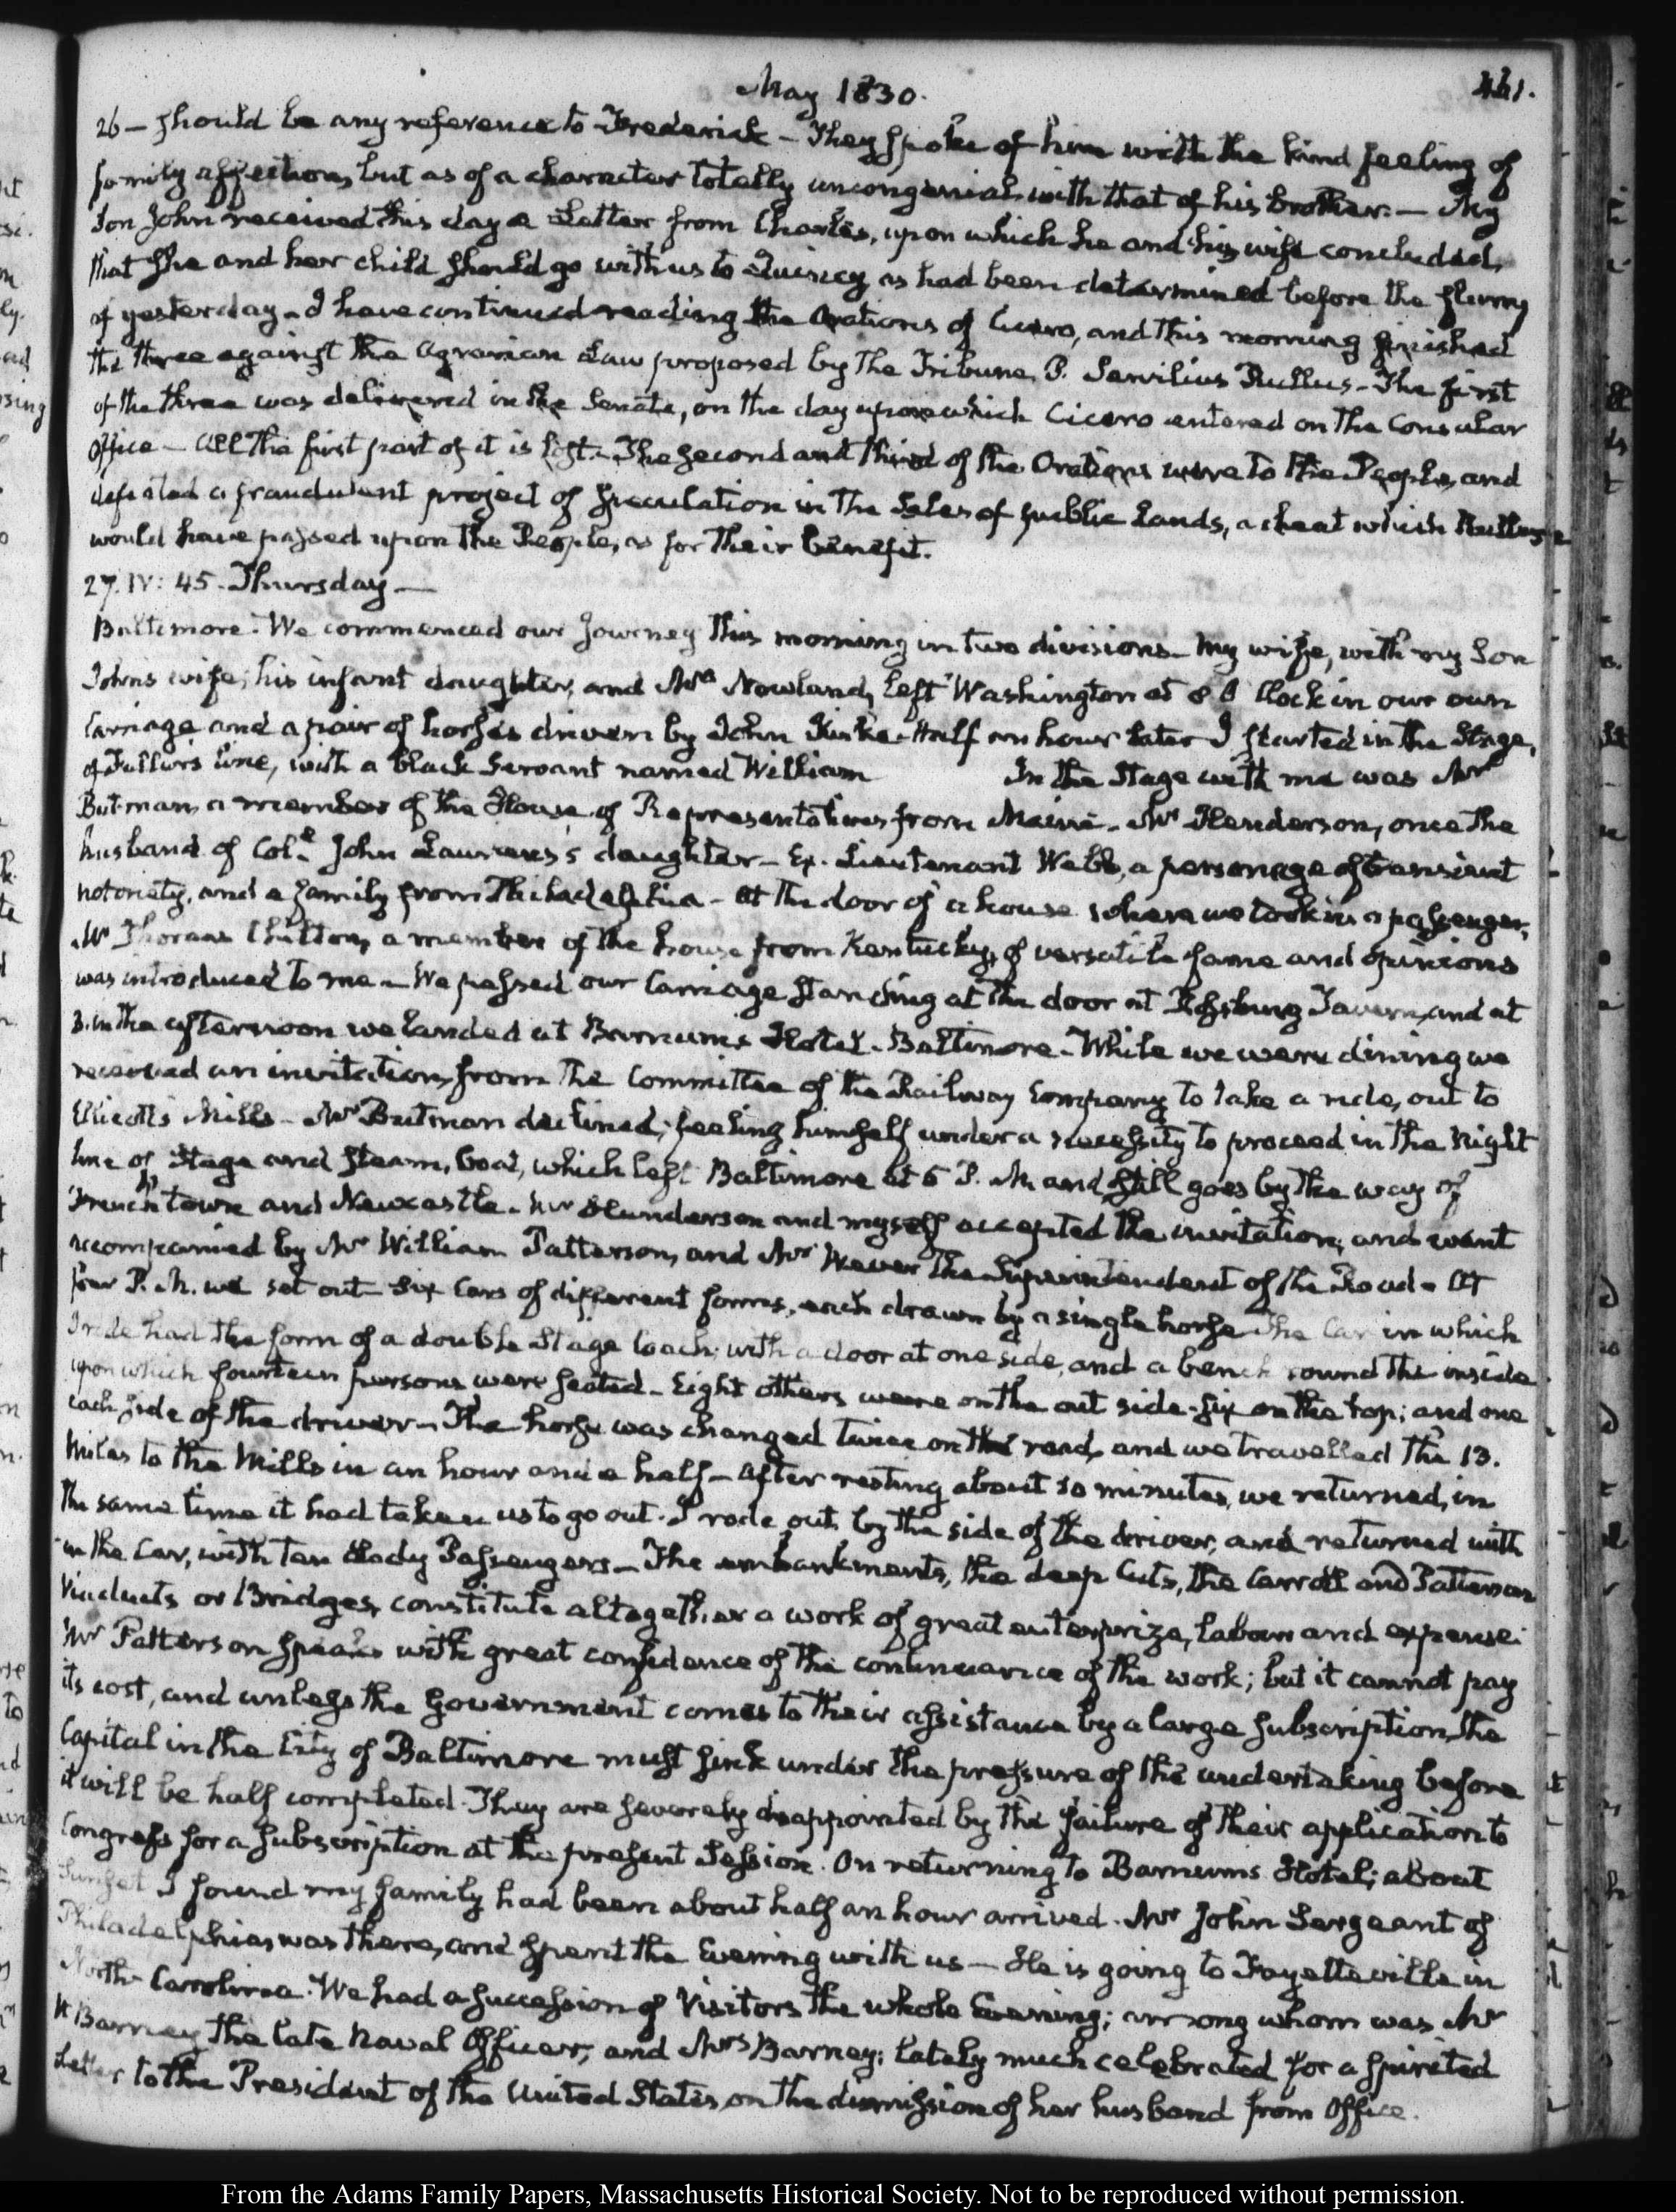 May 1830.
461.
26 — should be any reference to Frederick — They spoke of him with the kind feeling of
family affection, but as of a character totally uncongenial with that of his brother. — My
Son John received this day a Letter from Charles, upon which he and his wife concluded,
that she and her child should go with us to Quincy as had been determined before the flurry
of yesterday. I have continued reading the Orations of Cicero, and this morning finished
the three against the Agrarian Law proposed by the Tribune, P. Servilius Rullus — The first
of the three was delivered in the Senate, on the day upon which Cicero entered on the Consular
Office — All the first part of it is lost. The second and third of the Orations were to the People, and
defeated a fraudulent project of speculation in the Sales of public Lands, a cheat which Rullus
would have passed upon the People, as for their benefit.
27. IV: 45. Thursday —
Baltimore. We commenced our Journey this morning in two divisions — My wife, with my Son
John's wife, his infant daughter, and Mrs Nowland, left Washington at 8 O'Clock in our own
Carriage and a pair of horses driven by John Kirke — Half an hour later I started in the Stage,
of Fuller's line, with a black Servant named William In the Stage with me was Mr
Butman, a member of the House of Representatives from Maine — Mr Henderson, once the
husband of Coll. John Laurens's daughter — Ex. Lieutenant Webb, a personage of transient
notoriety, and a family from Philadelphia — At the door of a house where we took in a passenger,
Mr Thomas Chilton, a member of the house from Kentucky, of versatile fame and opinions
was introduced to me — We passed our Carriage standing at the door at Rossburg Tavern, and at
3. in the afternoon we landed at Barnum's Hotel. Baltimore — While we were dining we
received an invitation from the Committee of the Railway Company to take a ride, out to
Ellicott's Mills — Mr Butman declined; feeling himself under a necessity to proceed in the Night
line of Stage and Steam, boat, which left Baltimore at 5 P. M. and still goes by the way of
French town and Newcastle. Mr Henderson and myself accepted the invitation; and went
accompanied by Mr William Patterson, and Mr Wever the Superintendent of the Road — At
four P. M. we set out — Six Cars of different forms, each drawn by a single horse The Car in which
I rode had the form of a double Stage Coach; with a door at one side, and a bench round the inside
upon which fourteen persons were seated — Eight others were on the out side — six on the top; and one
each side of the driver — The horse was changed twice on the road, and we travelled the 13.
Miles to the Mills in an hour and a half — After resting about 10 minutes, we returned, in
the same time it had taken us to go out. I rode out by the side of the driver, and returned with
in the Car, with ten Lady Passengers — The embankments, the deep Cuts, the Carroll and Patterson
Viaducts or Bridges, constitute altogether a work of great enterprize, labour and expense:
Mr Patterson speaks with great confidence of the continuance of the work; but it cannot pay
its cost, and unless the Government comes to their assistance by a large subscription, the
Capital in the City of Baltimore must sink under the pressure of the undertaking before
it will be half completed. They are severely disappointed by the failure of their application to
Congress for a subscription at the present Session. On returning to Barnum's Hotel; about
Sunset I found my family had been about half an hour arrived. Mr John Sergeant of
Philadelphia, was there, and spent the Evening with us — He is going to Fayetteville in
North Carolina. We had a succession of Visitors the whole Evening; among whom was Mr
Barney the late Naval Officer; and Mrs Barney; lately much celebrated for a spirited
Letter to the President of the United States, on the dismission of her husband from Office.
From the Adams Family Papers, Massachusetts Historical Society. Not to be reproduced without permission.